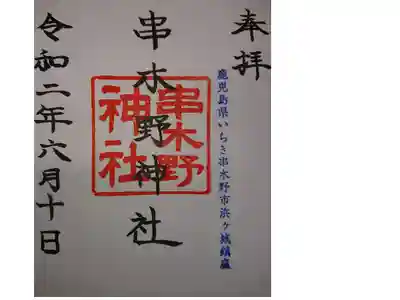 奉拝
鹿児島県いちき串木野市浜ヶ城鎮座
串木野神社
串木野
神社
令和二年六月十日